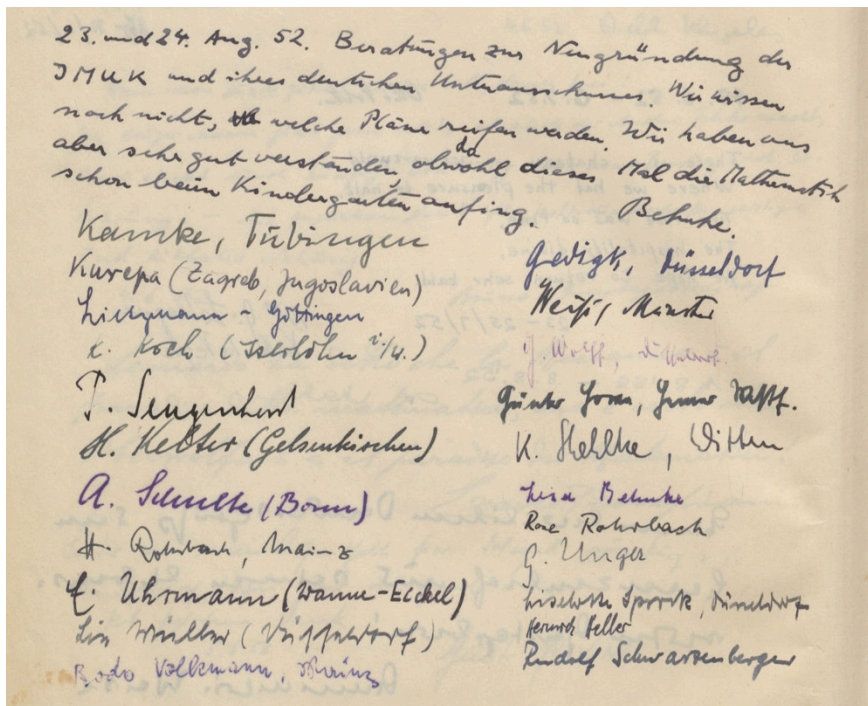 23. und 24. Aug. 52. Beratungen zur Neugründung der
IMUK und ihres deutschen Unterausschusses. Wir wissen
noch nicht, welche Pläne reifen werden. Wir haben uns
aber sehr gut verstanden, obwohl da dieses Mal die Mathematik
schon beim Kindergarten anfing. Behnke.
Kamke, Tübingen
Kurepa (Zagreb, Jugoslavien)
Lietzmann - Göttingen
K. Koch (Iserlohn i./W.)
P. Sengenhorst
H. Ketter (Gelsenkirchen)
A. Schulte (Bonn)
H. Rohrbach, Mainz
E. Uhrmann (Wanne-Eickel)
Lis Müller (Düsseldorf)
Bodo Volkmann, Mainz
Gedigk, Düsseldorf
Weiß, Münster
G. Wolff, Düsseldorf.
Günter
K. Stehlke, Witten
Lisa Behnke
Rose Rohrbach
G. Unger
Liselotte Sporck, Düsseldorf
Heinrich Heller
Rudolf Schwarzenberger